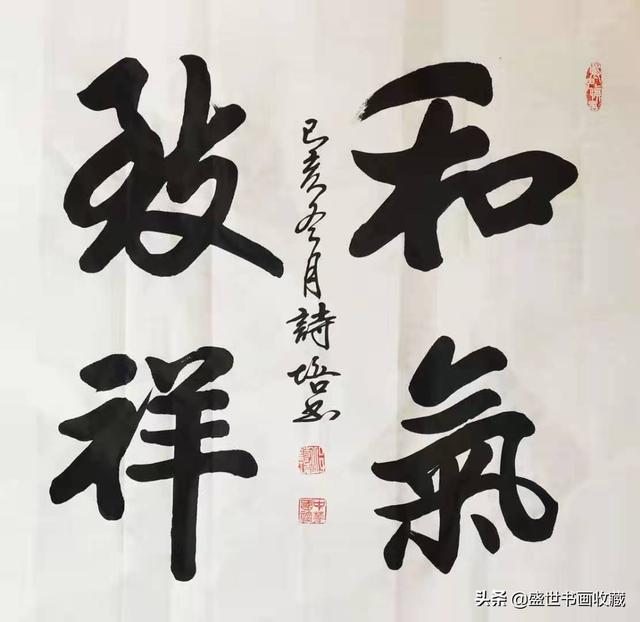 和氣
致祥
己亥冬月詩培书
头条 @盛世书画收藏